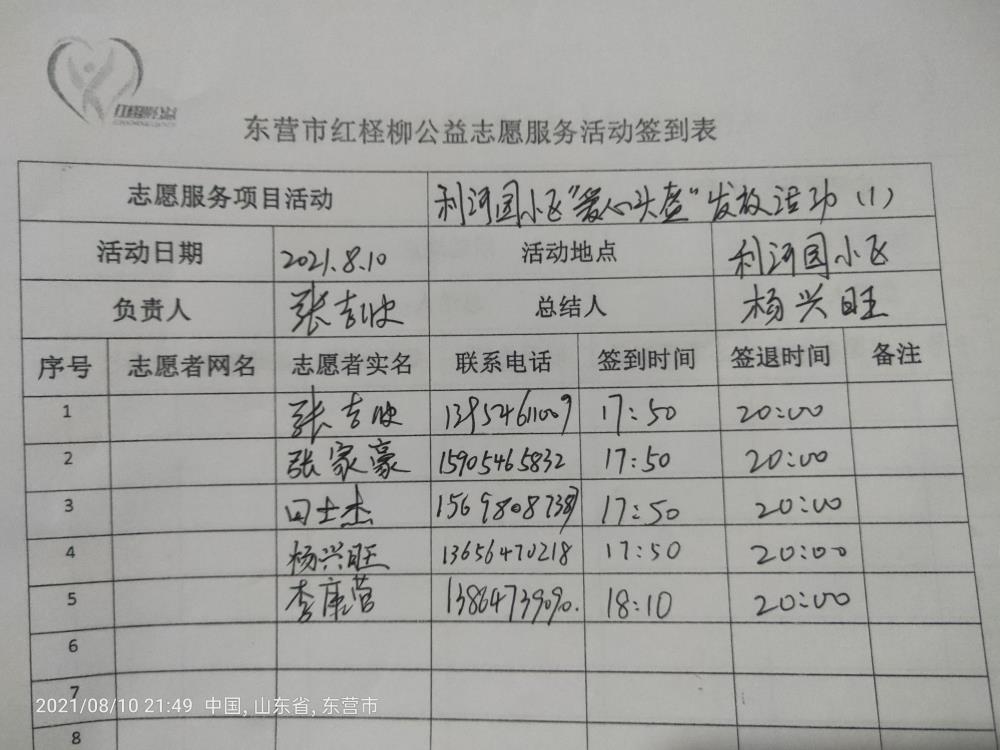 红柽柳公益
东营市红柽柳公益志愿服务活动签到表
志愿服务项目活动 利河园小区“爱心头盔”发放活动（1）
活动日期 2021.8.10 活动地点 利河园小区
负责人 张吉波 总结人 杨兴旺
序号 志愿者网名 志愿者实名 联系电话 签到时间 签退时间 备注
1 张吉波 13954611009 17:50 20:00
2 张家豪 15905465832 17:50 20:00
3 田士杰 15698087387 17:50 20:00
4 杨兴旺 13656470218 17:50 20:00
5 李康营 13864739090. 18:10 20:00
6
7
8
2021/08/10 21:49 中国, 山东省, 东营市